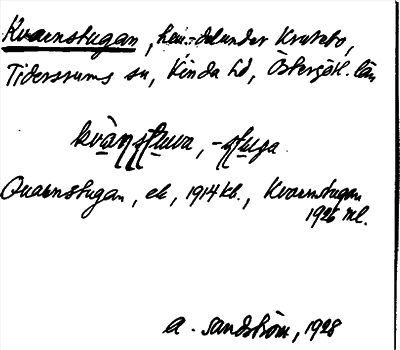 Kvarnstugan, hem.-del under Krutebo,
Tidersrums sn, Kinda hd, Östergötl. län
kvànstuva, -stuga
Quarnstugan, ek, 1914 kb., Kvarnstugan
1926 ml.
A. Sandström, 1928